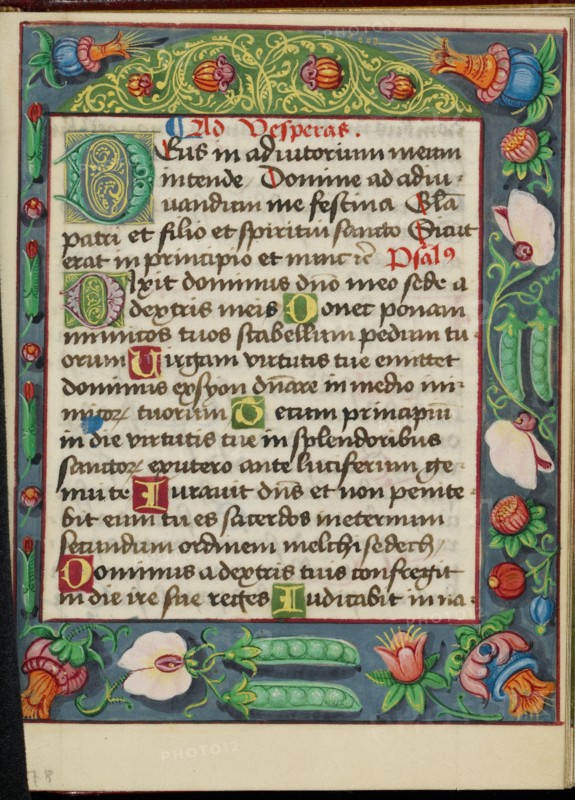 Ad Vesperas.
Deus in adiutorium meum
intende Domine ad adiu-
uandum me festina Gl̄a
patri et filio et spiritui sancto Sicut
erat in principio et nunc ⁊c̄ Psalꝰ
Dixit dominus dn̄o meo sede a
dextris meis Donec ponam
inimicos tuos scabellum pedum tu-
orum Uirgam virtutis tue emittet
dominus exsyon dn̄are in medio ini-
micoꝝ tuorum Tecum principiū
in die virtutis tue in splendoribus
sanctoꝝ exutero ante luciferum ge-
nui te Iurauit dn̄s et non penite-
bit eum tu es sacerdos ineternum
secundum ordinem melchisedech
Dominus adextris tuis confregit
in die ire sue reges Iudicabit in na-
78
PHOTO12